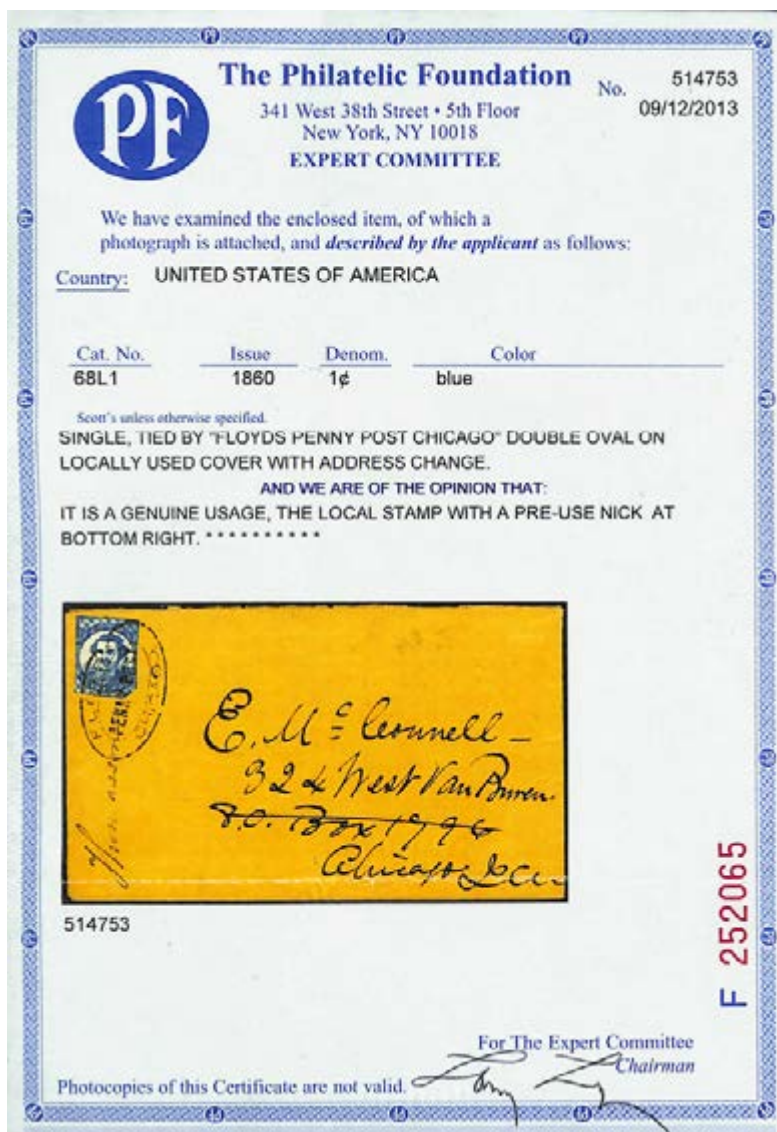 PF
The Philatelic Foundation
No. 514753
341 West 38th Street • 5th Floor
09/12/2013
New York, NY 10018
EXPERT COMMITTEE
We have examined the enclosed item, of which a
photograph is attached, and described by the applicant as follows:
Country: UNITED STATES OF AMERICA
Cat. No. Issue Denom. Color
68L1 1860 1¢ blue
Scott's unless otherwise specified.
SINGLE, TIED BY "FLOYDS PENNY POST CHICAGO" DOUBLE OVAL ON
LOCALLY USED COVER WITH ADDRESS CHANGE.
AND WE ARE OF THE OPINION THAT:
IT IS A GENUINE USAGE, THE LOCAL STAMP WITH A PRE-USE NICK AT
BOTTOM RIGHT. * * * * * * * * * *
E. Mc Connell
324 West Van Buren
P.O. Box 1796
Chicago
514753
F 252065
For The Expert Committee
Chairman
Photocopies of this Certificate are not valid.